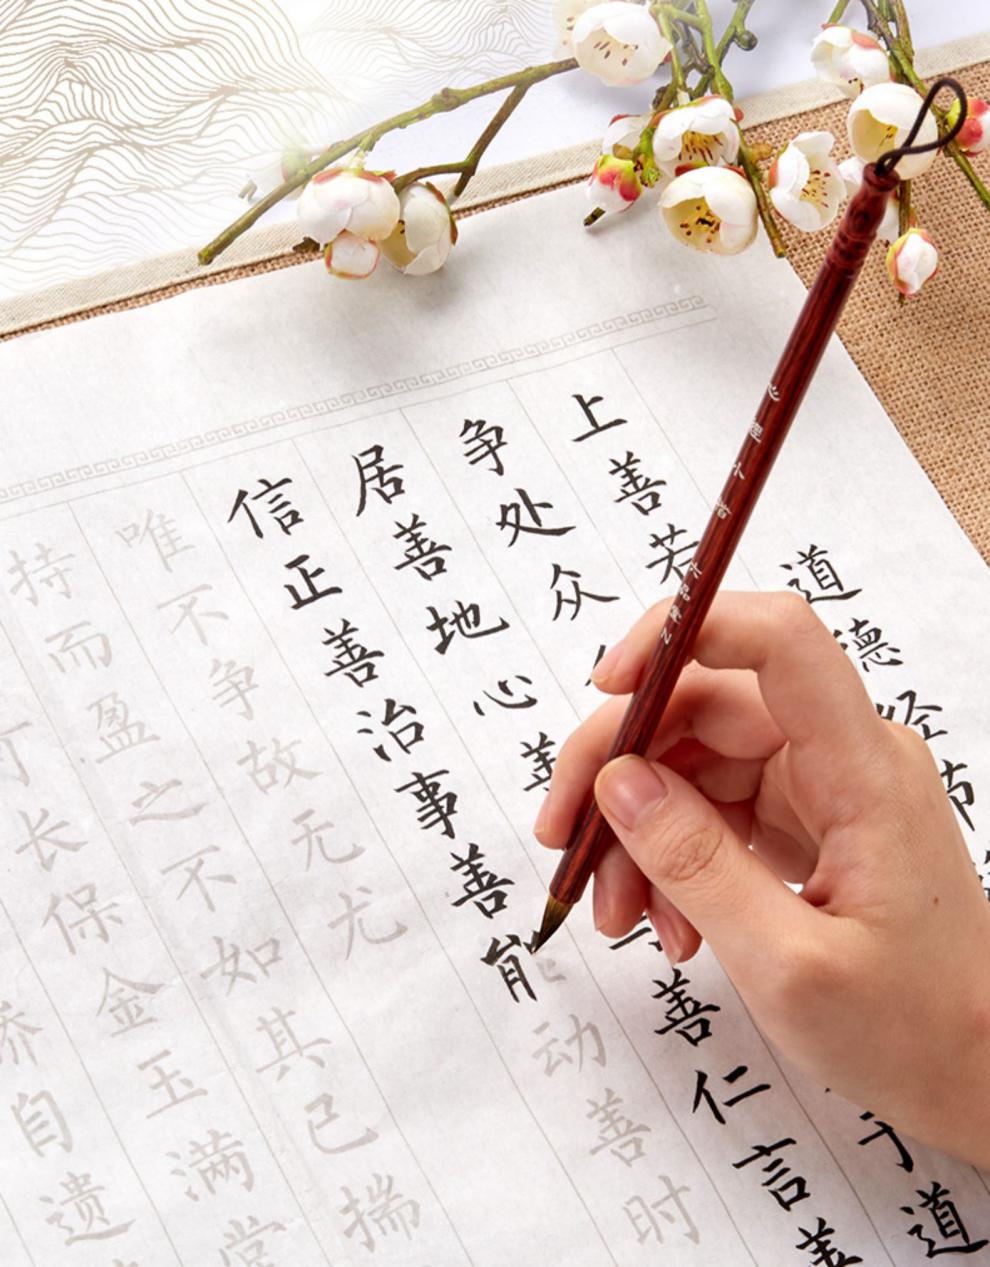 道德经节
上善若
争处众于道
居善地心善与善仁言善
信正善治事善能动善时
唯不争故无尤
持而盈之不如其已揣
长保金玉满堂
骄自遗